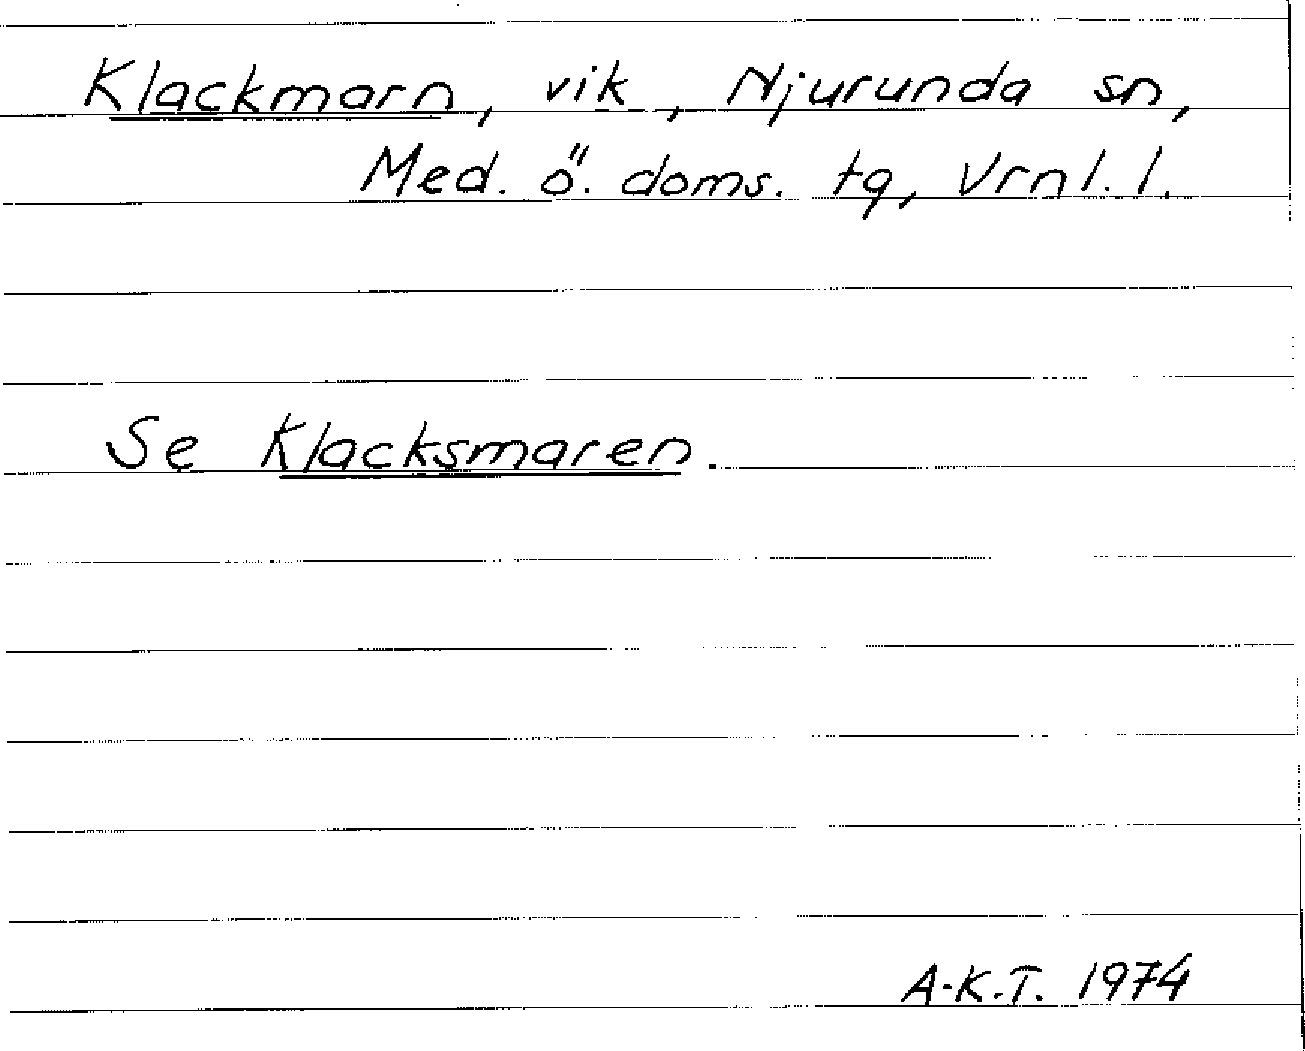 Klackmarn, vik, Njurunda sn,
Med. ö. doms. tg, Vrnl. l.
Se Klacksmaren.
A-K.T. 1974